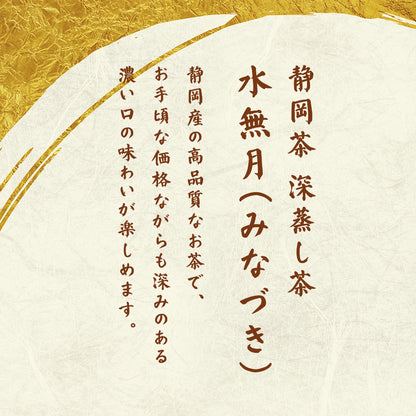 静岡茶 深蒸し茶
水無月(みなづき)
静岡産の高品質なお茶で、
お手頃な価格ながらも深みのある
濃い口の味わいが楽しめます。